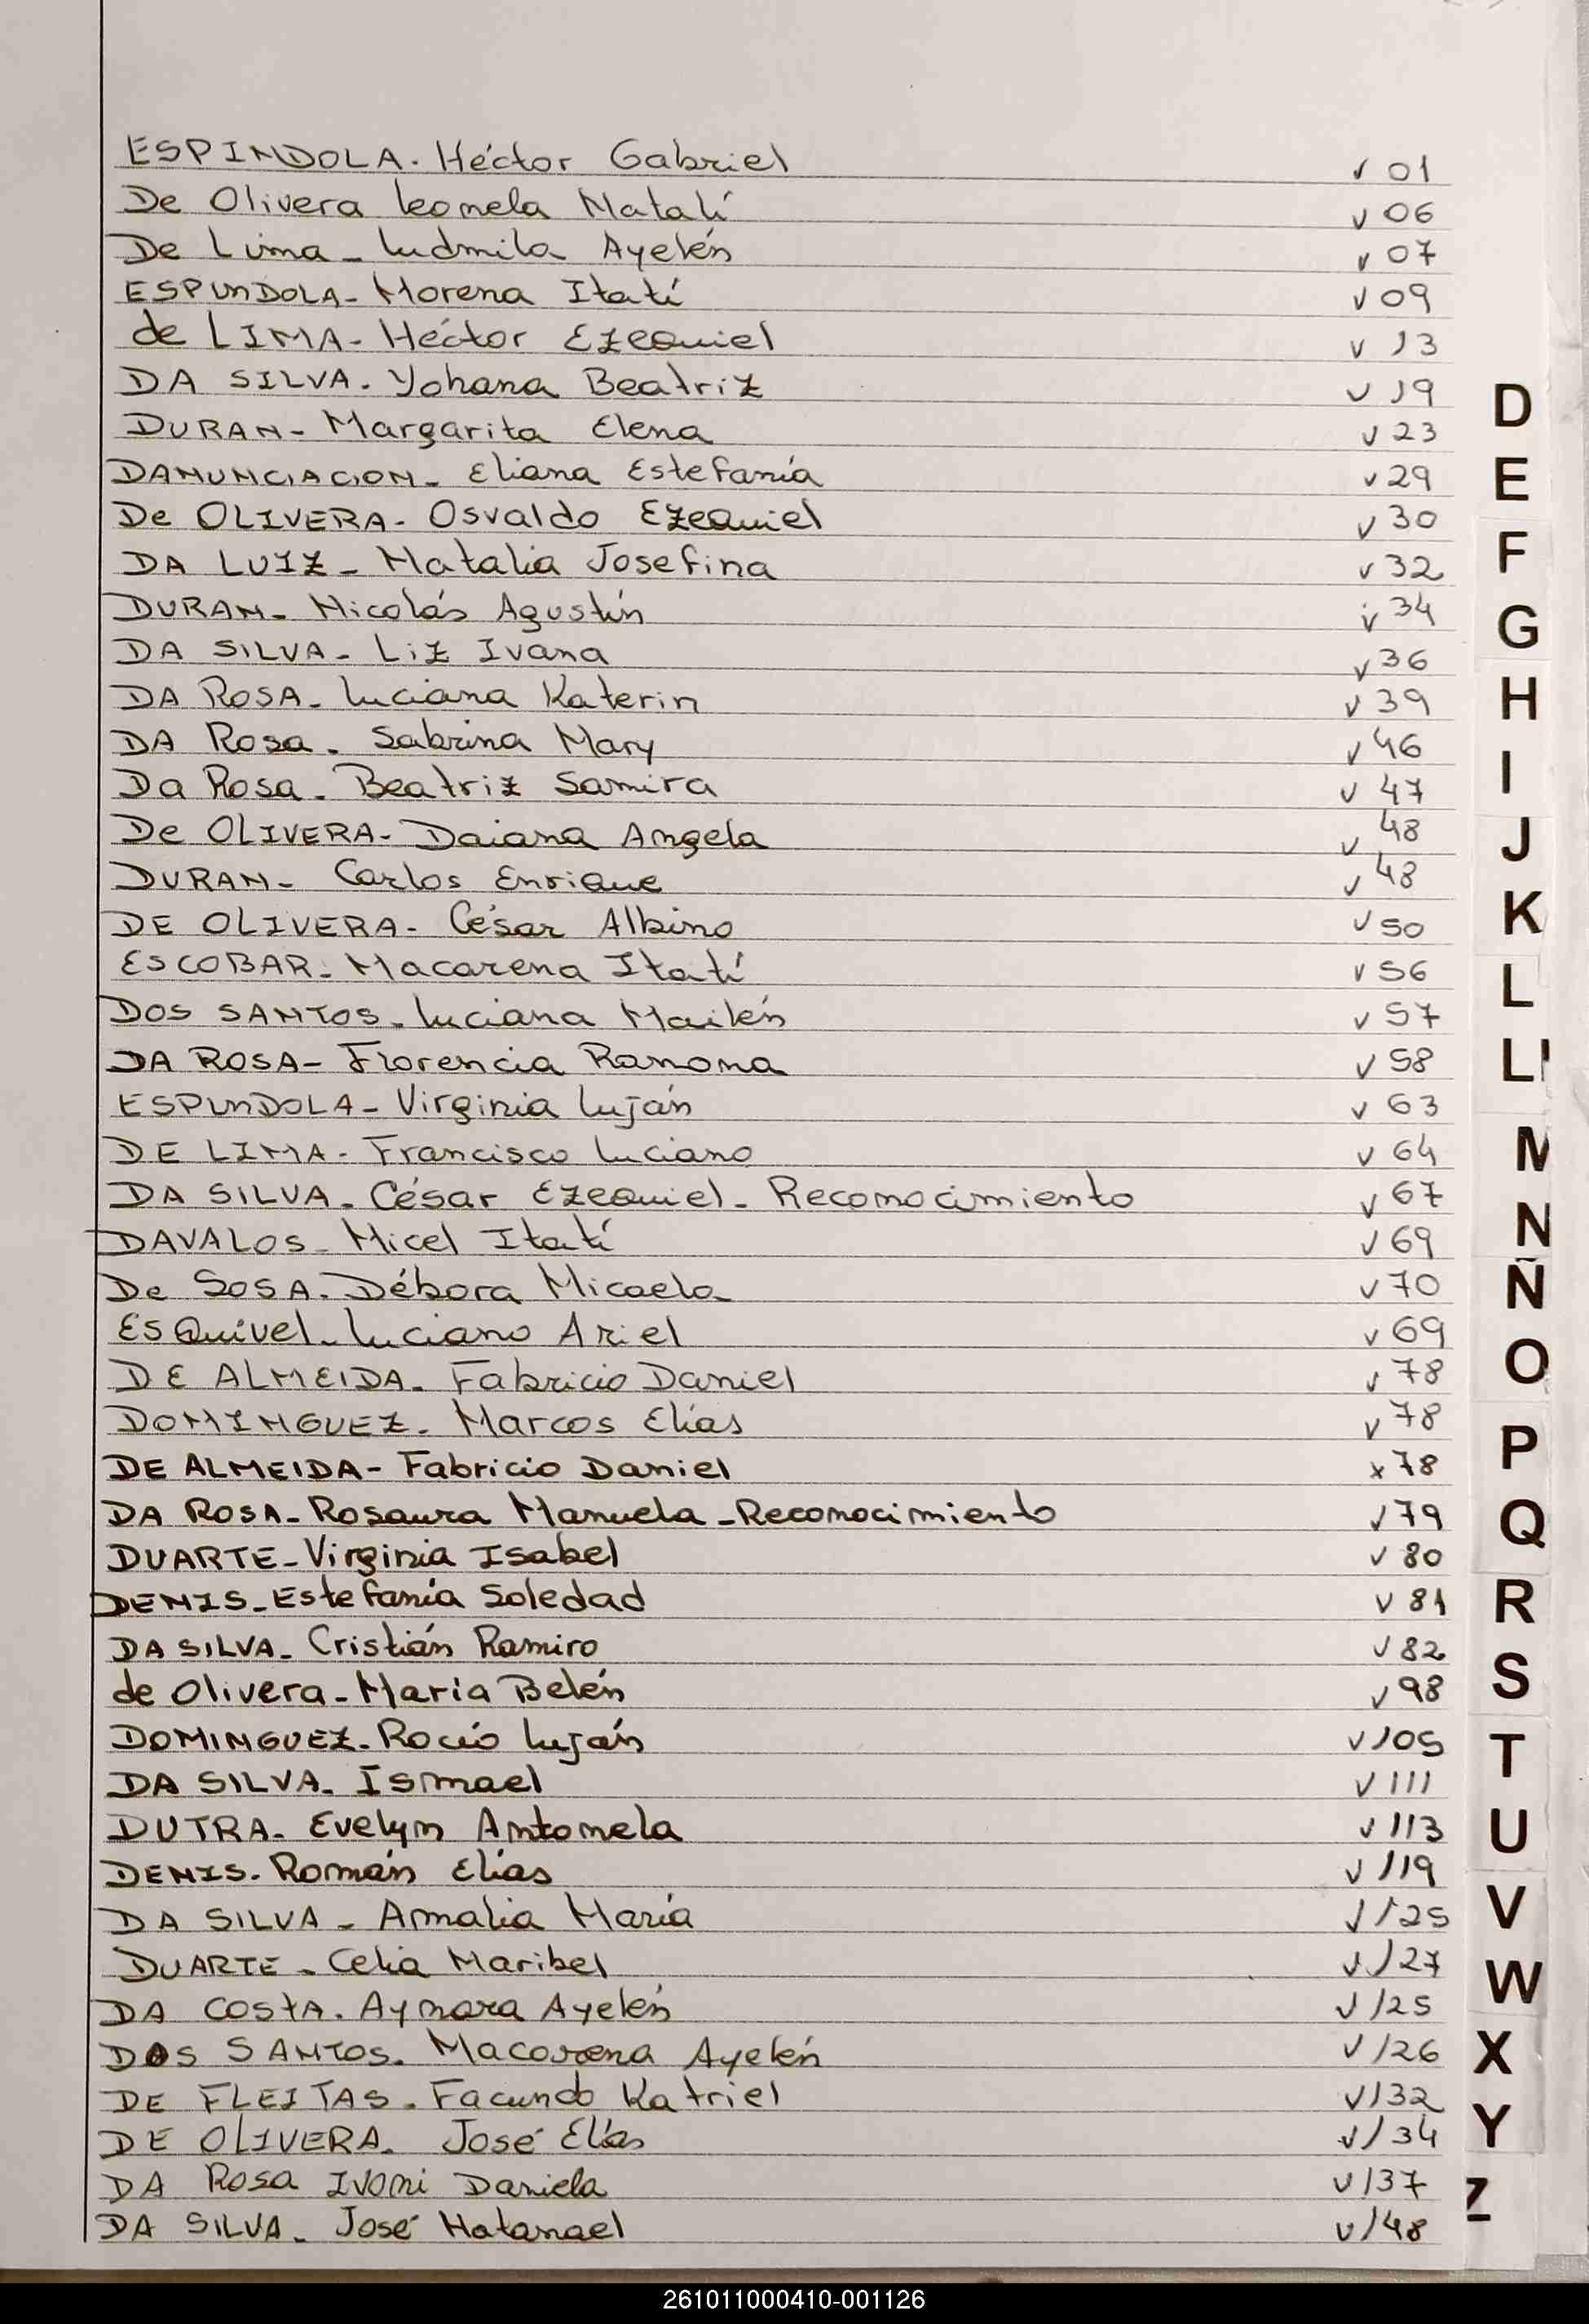 ESPINDOLA. Héctor Gabriel v 01
De Olivera Leonela Natalí v 06
De Lima - Ludmila Ayelén v 07
ESPINDOLA - Morena Itatí v 09
de LIMA - Héctor Ezequiel v 13
DA SILVA. Yohana Beatriz v 19
DURAN - Margarita Elena v 23
DANUNCIACION - Eliana Estefanía v 29
De OLIVERA - Osvaldo Ezequiel v 30
DA LUIZ - Natalia Josefina v 32
DURAN - Nicolás Agustín v 34
DA SILVA - Liz Ivana v 36
DA ROSA - Luciana Katerin v 39
DA Rosa - Sabrina Mary v 46
Da Rosa - Beatriz Samira v 47
De OLIVERA - Daiana Angela v 48
DURAN - Carlos Enrique v 48
DE OLIVERA - César Albino v 50
ESCOBAR - Macarena Itatí v 56
DOS SANTOS - Luciana Mailén v 57
DA ROSA - Florencia Ramona v 58
ESPINDOLA - Virginia Luján v 63
DE LIMA - Francisco Luciano v 64
DA SILVA - César Ezequiel - Reconocimiento v 67
DAVALOS - Micel Itatí v 69
De SOSA - Débora Micaela v 70
ESQuivel - Luciano Ariel v 69
DE ALMEIDA - Fabricio Daniel v 78
DOMINGUEZ - Marcos Elías v 78
DE ALMEIDA - Fabricio Daniel x 78
DA ROSA - Rosaura Manuela - Reconocimiento v 79
DUARTE - Virginia Isabel v 80
DENIS - Estefanía Soledad v 81
DA SILVA - Cristián Ramiro v 82
de Olivera - María Belén v 98
DOMINGUEZ - Rocío Luján v 105
DA SILVA - Ismael v 111
DUTRA - Evelyn Antonela v 113
DENIS - Román Elías v 119
DA SILVA - Amalia María v 125
DUARTE - Celia Maribel v 127
DA COSTA. Aymara Ayelén v 125
DOS SANTOS. Macarena Ayelén v 126
DE FLEITAS. Facundo Katriel v 132
DE OLIVERA. José Elías v 134
DA Rosa Ivoni Daniela v 137
DA SILVA - José Natanael v 148
D
E
F
G
H
I
J
K
L
LL
M
N
Ñ
O
P
Q
R
S
T
U
V
W
X
Y
Z
261011000410-001126